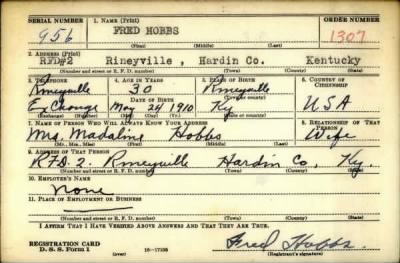 SERIAL NUMBER 1. NAME (Print) ORDER NUMBER
956 FRED HOBBS 1307
(First) (Middle) (Last)
2. ADDRESS (Print)
RFD#2 Rineyville , Hardin Co. Kentucky
(Number and street or R. F. D. number) (Town) (County) (State)
3. TELEPHONE 4. AGE IN YEARS 5. PLACE OF BIRTH 6. COUNTRY OF CITIZENSHIP
Rineyville 30 Rineyville
DATE OF BIRTH (Town or county)
Exchange May 24 1910 Ky USA
(Exchange) (Number) (Mo.) (Day) (Yr.) (State or country)
7. NAME OF PERSON WHO WILL ALWAYS KNOW YOUR ADDRESS 8. RELATIONSHIP OF THAT PERSON
Mrs. Madaline Hobbs Wife
(Mr., Mrs., Miss) (First) (Middle) (Last)
9. ADDRESS OF THAT PERSON
RFD 2. Rineyville Hardin Co, Ky.
(Number and street or R. F. D. number) (Town) (County) (State)
10. EMPLOYER'S NAME
None
11. PLACE OF EMPLOYMENT OR BUSINESS
(Number and street or R. F. D. number) (Town) (County) (State)
I AFFIRM THAT I HAVE VERIFIED ABOVE ANSWERS AND THAT THEY ARE TRUE.
REGISTRATION CARD
D. S. S. Form 1 (over) 16-17105 Fred Hobbs
(Registrant's signature)